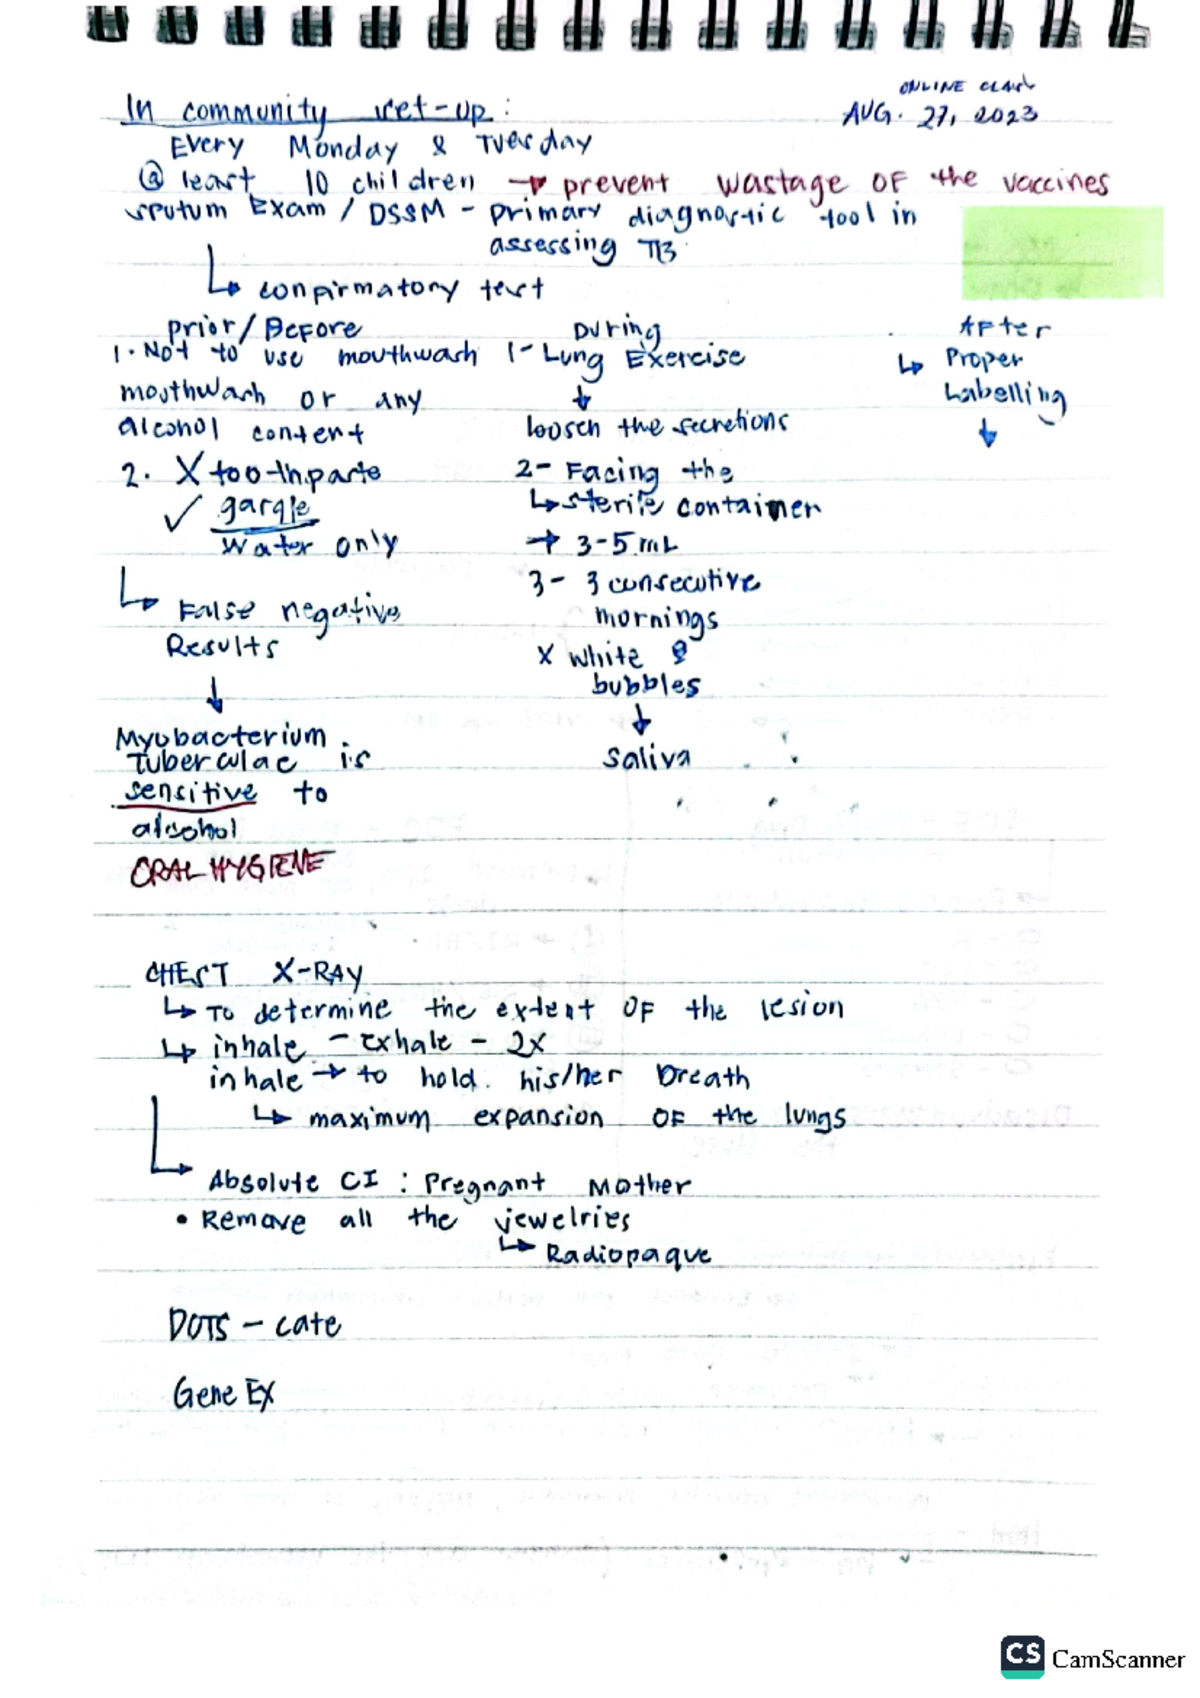 ONLINE CLASS
In community set-up: AUG. 27, 2023
Every Monday & Tuesday
@ least 10 children → prevent wastage of the vaccines
sputum Exam / DSSM - primary diagnostic tool in
assessing TB
↳ confirmatory test
prior/Before
1. Not to use mouthwash
mouthwash or any
alcohol content
2. X toothpaste
✓ gargle
water only
↳ False negative
Results
↓
Myobacterium
Tuberculae is
sensitive to
alcohol
ORAL HYGIENE
During
1- Lung Exercise
↓
loosen the secretions
2- Facing the
↳ sterile container
→ 3-5 mL
3- 3 consecutive
mornings
X white &
bubbles
↓
saliva
After
↳ Proper
Labelling
↓
CHEST X-RAY
↳ To determine the extent of the lesion
↳ inhale - exhale - 2x
inhale → to hold his/her breath
↳ maximum expansion of the lungs
↳ Absolute CI : Pregnant Mother
• Remove all the jewelries
↳ Radiopaque
DOTS - cate
Gene EX
CS CamScanner